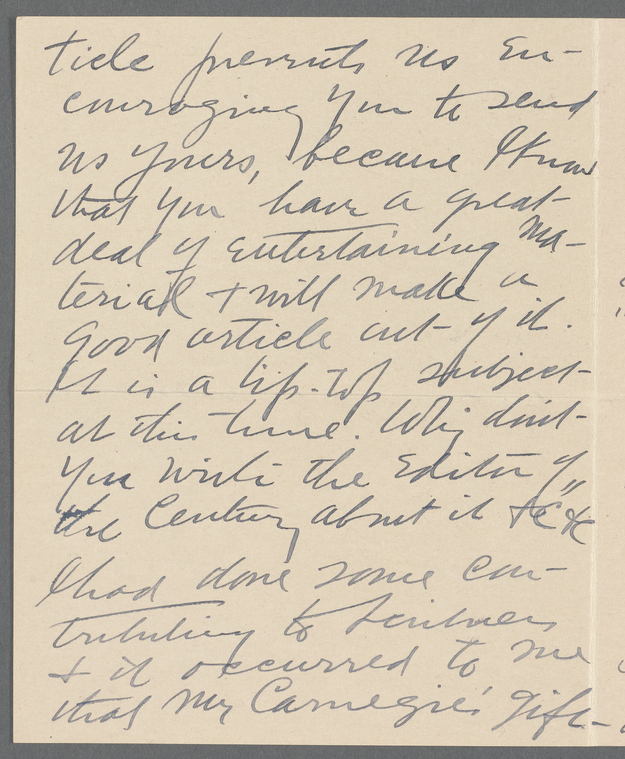 ticle prevents us en-
couraging you to send
us yours, because I know
that you have a great
deal of entertaining ma-
terial & will make a
good article out of it.
It is a tip-top subject
at this time. Why don't
you write the Editor of
the Century about it &c &c"
I had done some con-
tributing to Scribners
& it occurred to me
that Mr Carnegie's gift-